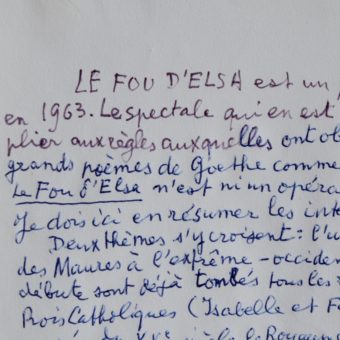 LE FOU D'ELSA est un
en 1963. Le spectale qui en est
plier aux règles auxquelles ont ob
grands poèmes de Goethe comme
Le Fou d'Elsa n'est ni un opéra
Je dois ici en résumer les int
Deux thèmes s'y croisent : l'u
des Maures à l'extrême-occiden
débute sont déjà tombés tous les
Rois Catholiques (Isabelle et F